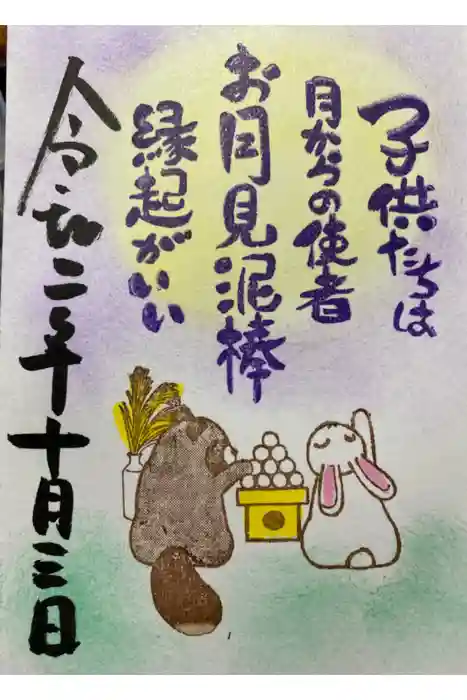 子供たちは
月からの使者
お月見泥棒
縁起がいい
令和二年十月三日